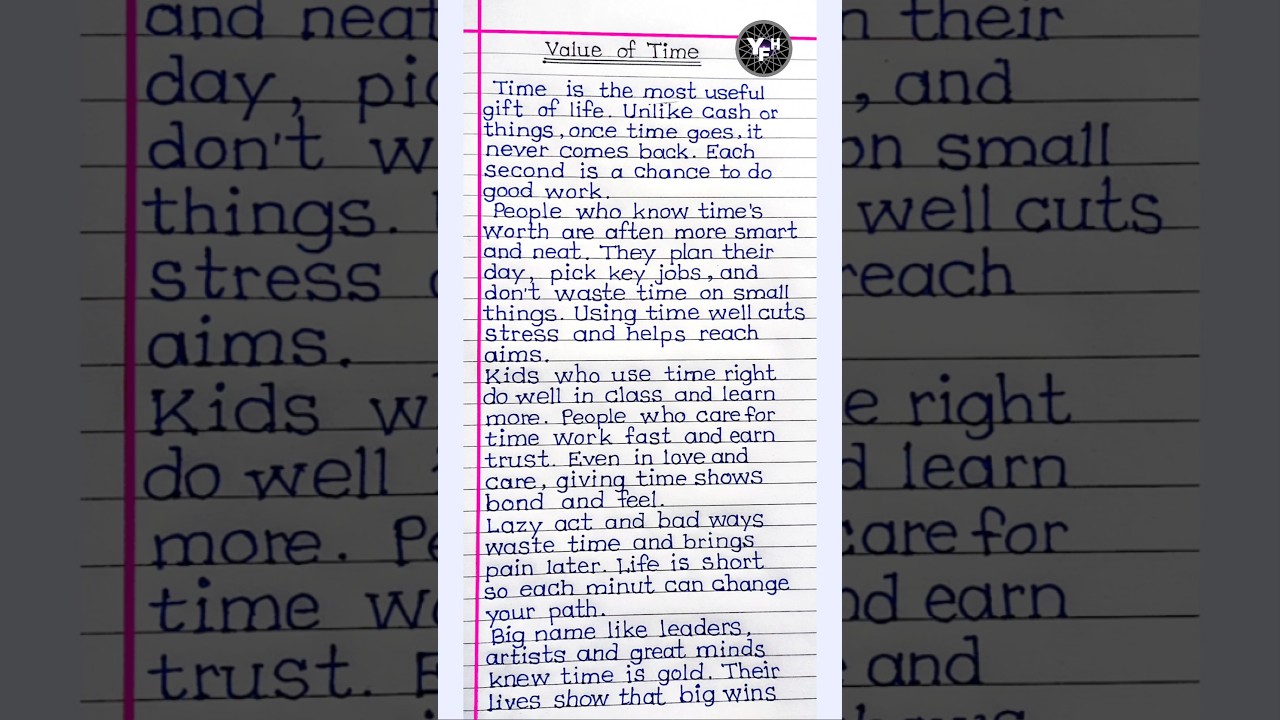 Value of Time
YFH
Time is the most useful
gift of life. Unlike cash or
things, once time goes, it
never comes back. Each
second is a chance to do
good work.
People who know time's
worth are aften more smart
and neat. They plan their
day, pick key jobs, and
don't waste time on small
things. Using time well cuts
stress and helps reach
aims.
Kids who use time right
do well in class and learn
more. People who care for
time work fast and earn
trust. Even in love and
care, giving time shows
bond and feel.
Lazy act and bad ways
waste time and brings
pain later. Life is short
so each minut can change
your path.
Big name like leaders,
artists and great minds
knew time is gold. Their
lives show that big wins